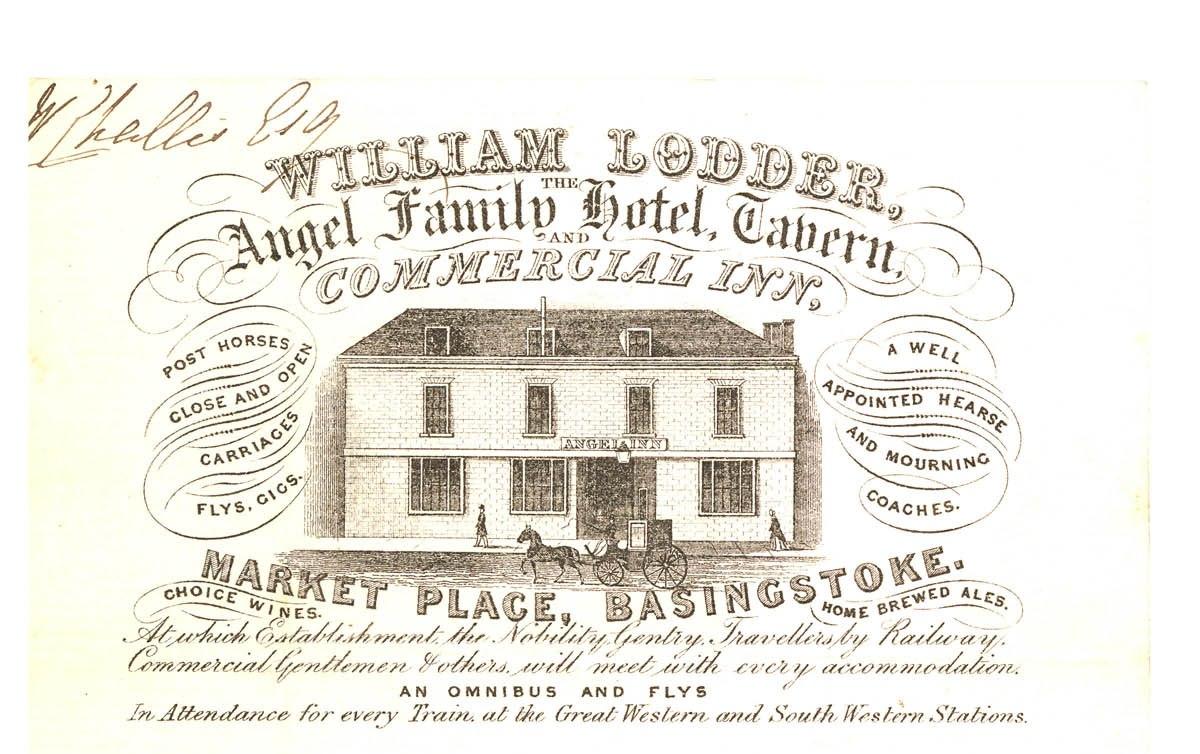 W Challis Esq
WILLIAM LODDER,
THE
Angel Family Hotel, Tavern,
AND
COMMERCIAL INN,
POST HORSES
CLOSE AND OPEN
CARRIAGES
FLYS, GIGS.
A WELL
APPOINTED HEARSE
AND MOURNING
COACHES.
ANGEL INN
MARKET PLACE, BASINGSTOKE.
CHOICE WINES.
HOME BREWED ALES.
At which Establishment, the Nobility, Gentry, Travellers by Railway,
Commercial Gentlemen & others, will meet with every accommodation.
AN OMNIBUS AND FLYS
In Attendance for every Train, at the Great Western and South Western Stations.